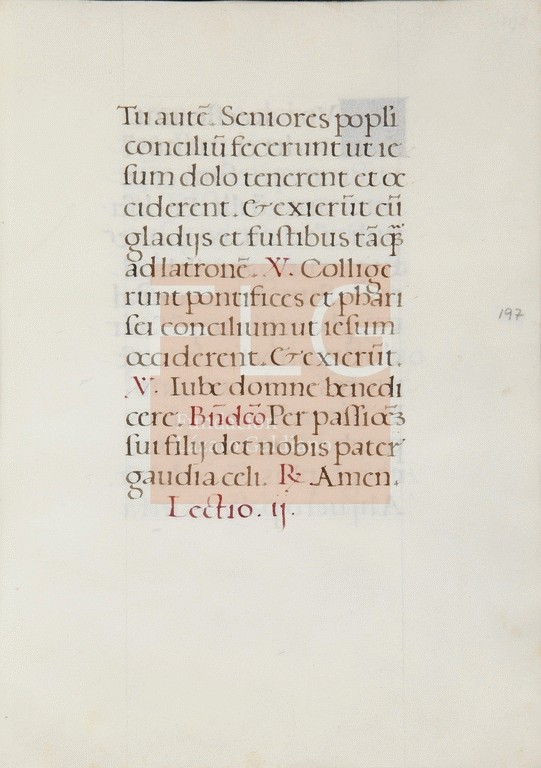 Tu autē. Seniores popl'i
conciliū fecerunt ut ie
ſum dolo tenerent et oc
ciderent. & exierūt cū
gladijs et fuſtibus tāqȝ
ad latronē. V. Collige
runt pontifices et phari
ſei concilium ut ieſum
occiderent. & exierūt.
V. Iube domne benedi
cere. Bn̄deō Per paſſioēȝ
ſui filij det nobis pater
gaudia celi. R. Amen.
Lectio. ij.
197
FLG